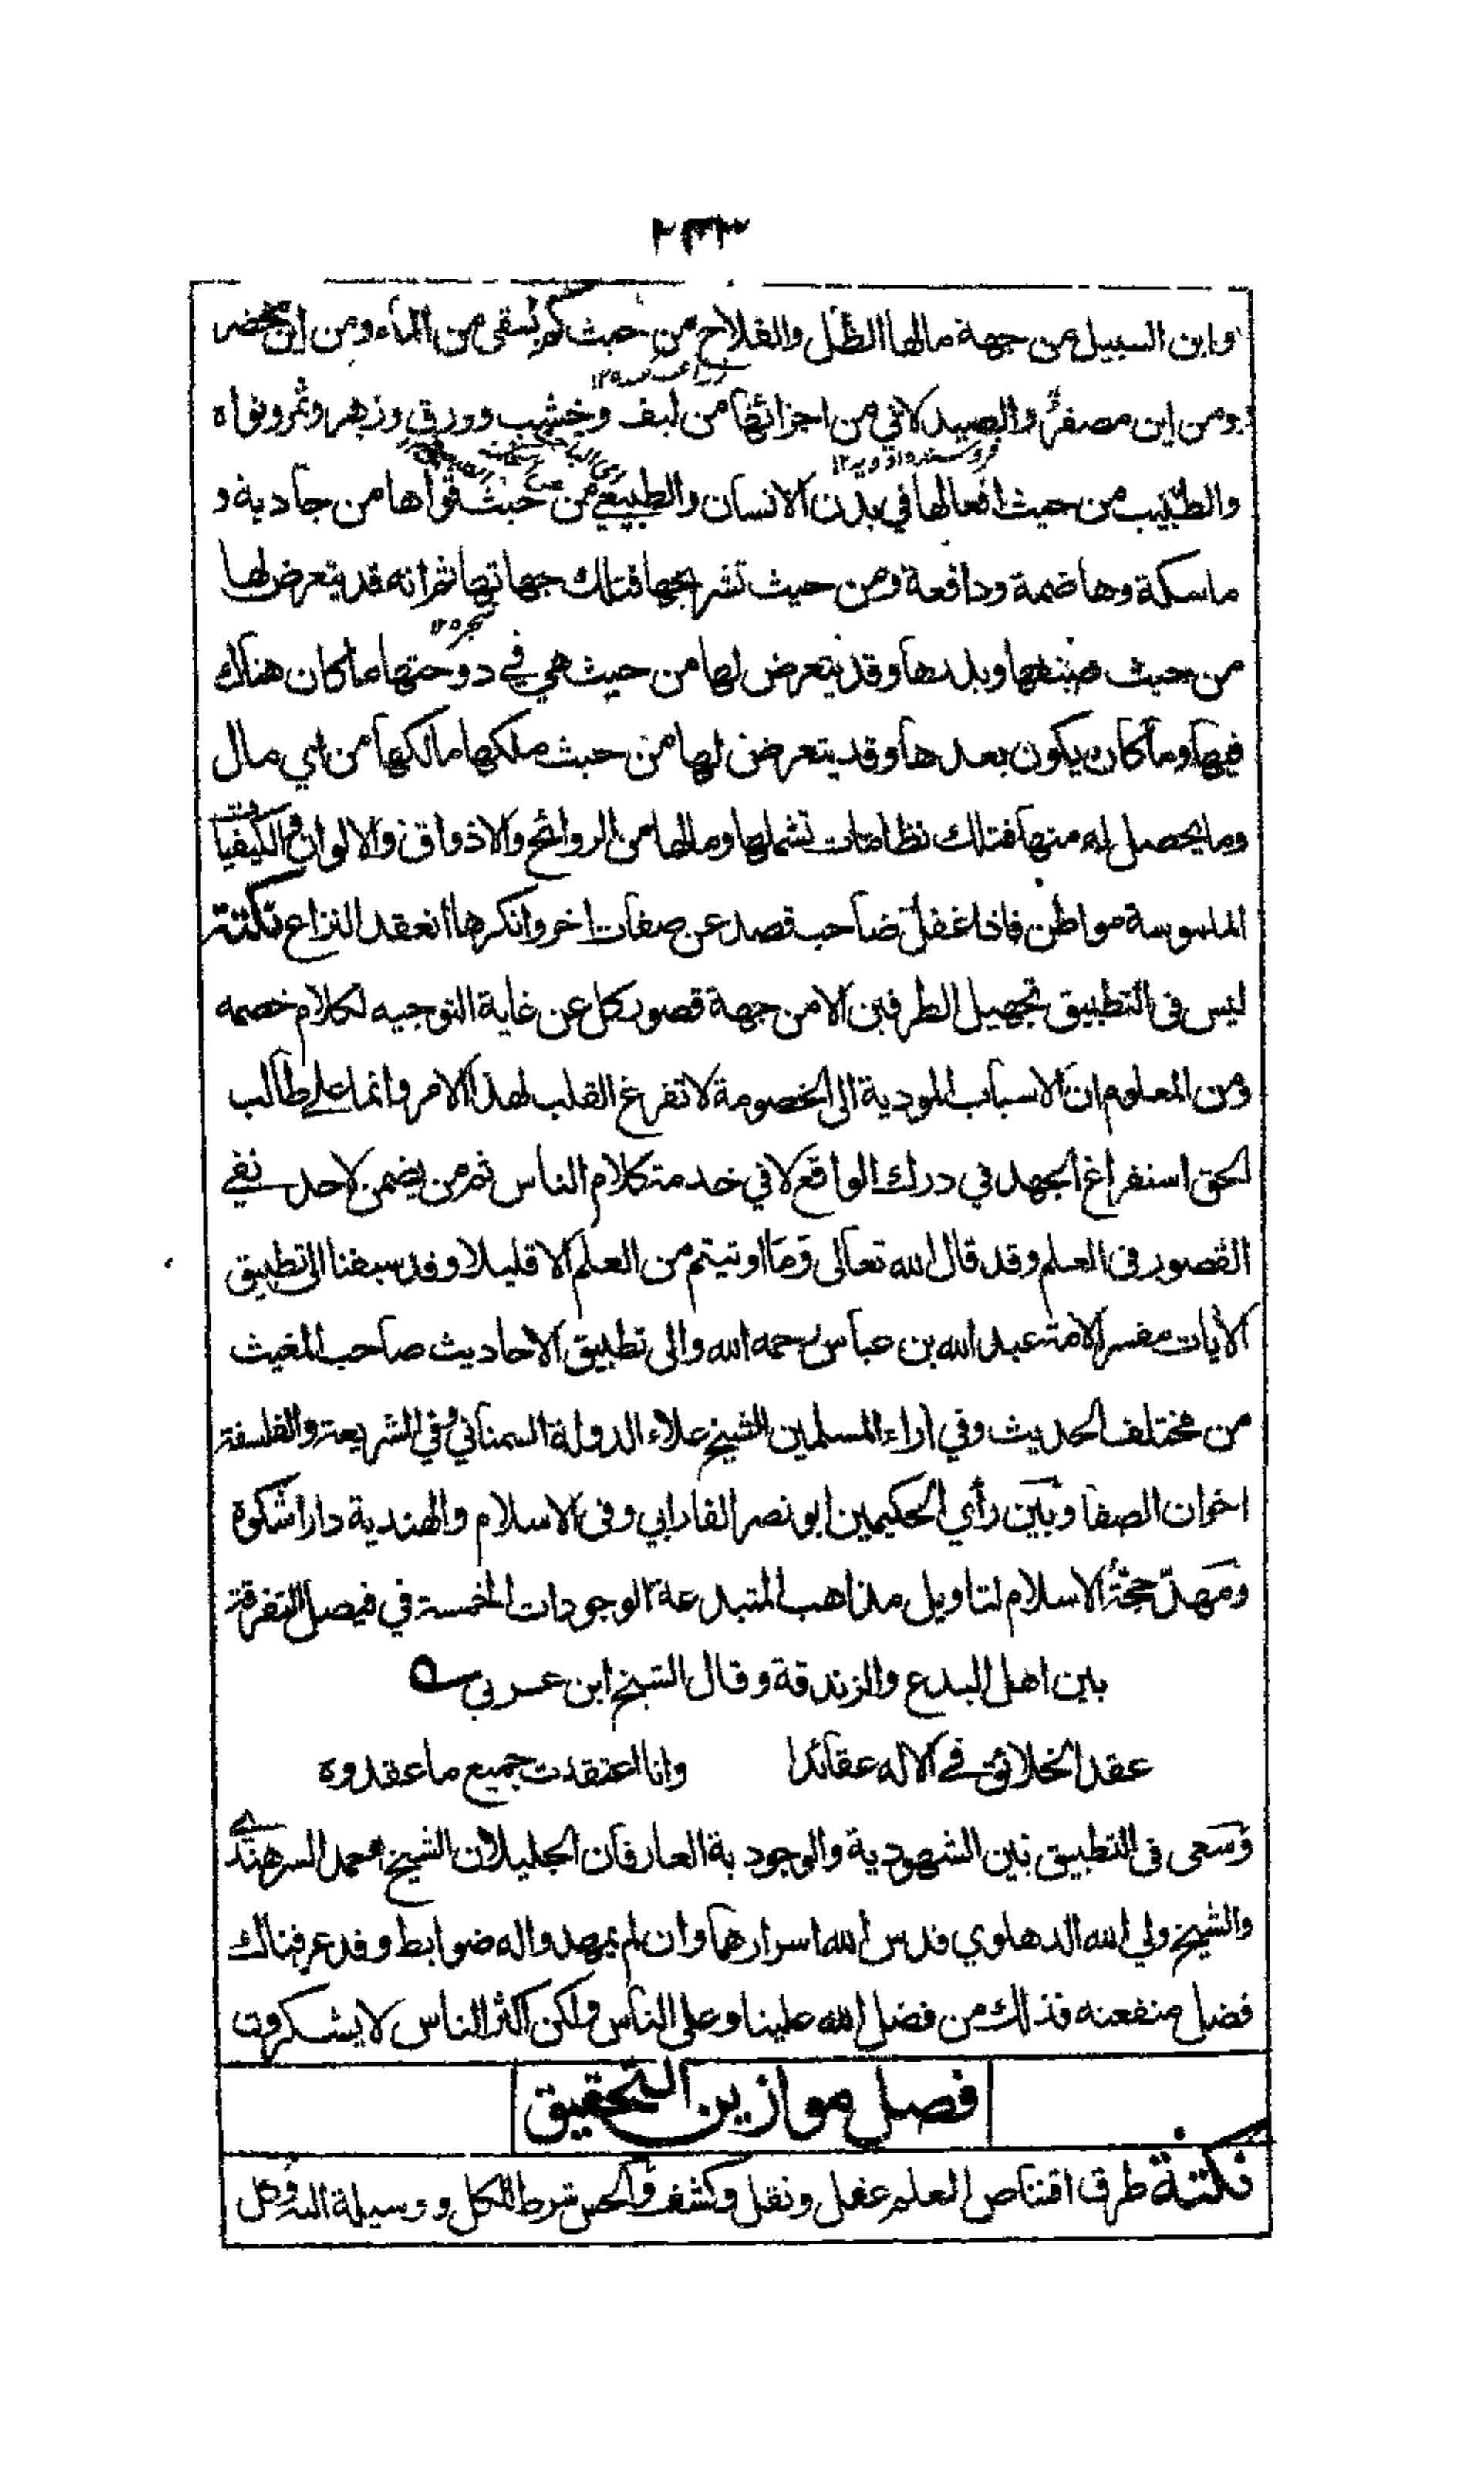 ٢٣٣
وابن السبيل من جهة مالها الظل والفلاح من حيث كم يسقى من الماء ومن اين يخضر
ومن اين مصفر والصيدلاني من اجزائها من ليف وخشب وورق وزهر وثمر ونواه
والطبيب من حيث افعالها في بدن الانسان والطبيعي من حيث قواها من جاذبة و
ماسكة وهاضمة ودافعة ومن حيث تشريحها فتلك جهاتها ثم انه قد يتعرض لها
من حيث صنفها وبلدها وقد يتعرض لها من حيث هي في دوحتها ما كان هناك
فيها وما كان يكون بعدها وقد يتعرض لها من حيث ملكها مالكها من اي مال
وما يحصل له منها فتلك نظامات تشملها ومالها من الروائح والاذواق والالوان والكيفيات
الملموسة مواطن فاذا غفل صاحب قصد عن صفات اخر وانكرها انعقد النزاع نكتة
ليس في التطبيق تجهيل الطرفين الا من جهة قصور كل عن غاية التوجيه لكلام خصمه
ومن المعلوم ان الاسباب المودية الى الخصومة لا تفرغ القلب لهذا الامر وانما على طالب
الحق استفراغ الجهد في درك الواقع لا في خدمة كلام الناس ثم من يضمن لاحد نفي
القصور في العلم وقد قال الله تعالى وما اوتيتم من العلم الا قليلا وقد سبقنا الى تطبيق
الايات مفسر الامة عبد الله بن عباس رحمه الله والى تطبيق الاحاديث صاحب المغيث
من مختلف الحديث وفي اراء المسلمين الشيخ علاء الدولة السمناني وفي الشريعة والفلسفة
اخوان الصفا وبين رأي الحكيمين ابو نصر الفارابي وفي الاسلام والهندية دارا شكوة
ومهد حجة الاسلام لتاويل مذاهب المتبدعة الوجودات الخمسة في فيصل التفرقة
بين اهل البدع والزندقة وقال الشيخ ابن عربي
عقد الخلائق في الاله عقائدا وانا اعتقدت جميع ما عقدوه
وسعى في التطبيق بين الشهودية والوجودية العارفان الجليلان الشيخ محمد السرهندي
والشيخ ولي الله الدهلوي قدس الله اسرارهما وان لم يمهدوا له ضوابط وقد عرفناك
فضل منفعته فذلك من فضل الله علينا وعلى الناس ولكن اكثر الناس لا يشكرون
فصل موازين التحقيق
نكتة طرق اقتناص العلم عقل ونقل وكشف والحس شرط للكل ووسيلة اليه وكل